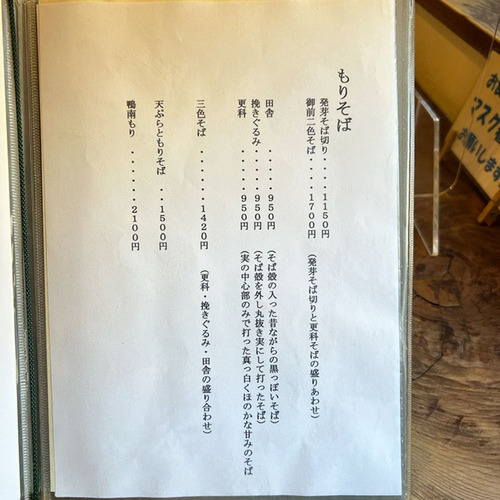 もりそば
発芽そば切り・・・・1150円
御前二色そば・・・・1700円 (発芽そば切りと更科そばの盛りあわせ)
田舎 ・・・・・950円 (そば殻の入った昔ながらの黒っぽいそば)
挽きぐるみ・・・・・950円 (そば殻を外し丸抜き実にして打ったそば)
更科 ・・・・・950円 (実の中心部のみで打った真っ白くほのかな甘みのそば
三色そば ・・・・・・1420円 (更科・挽きぐるみ・田舎の盛り合わせ)
天ぷらともりそば ・・1500円
鴨南もり ・・・・・・2100円
マスク
お願いします